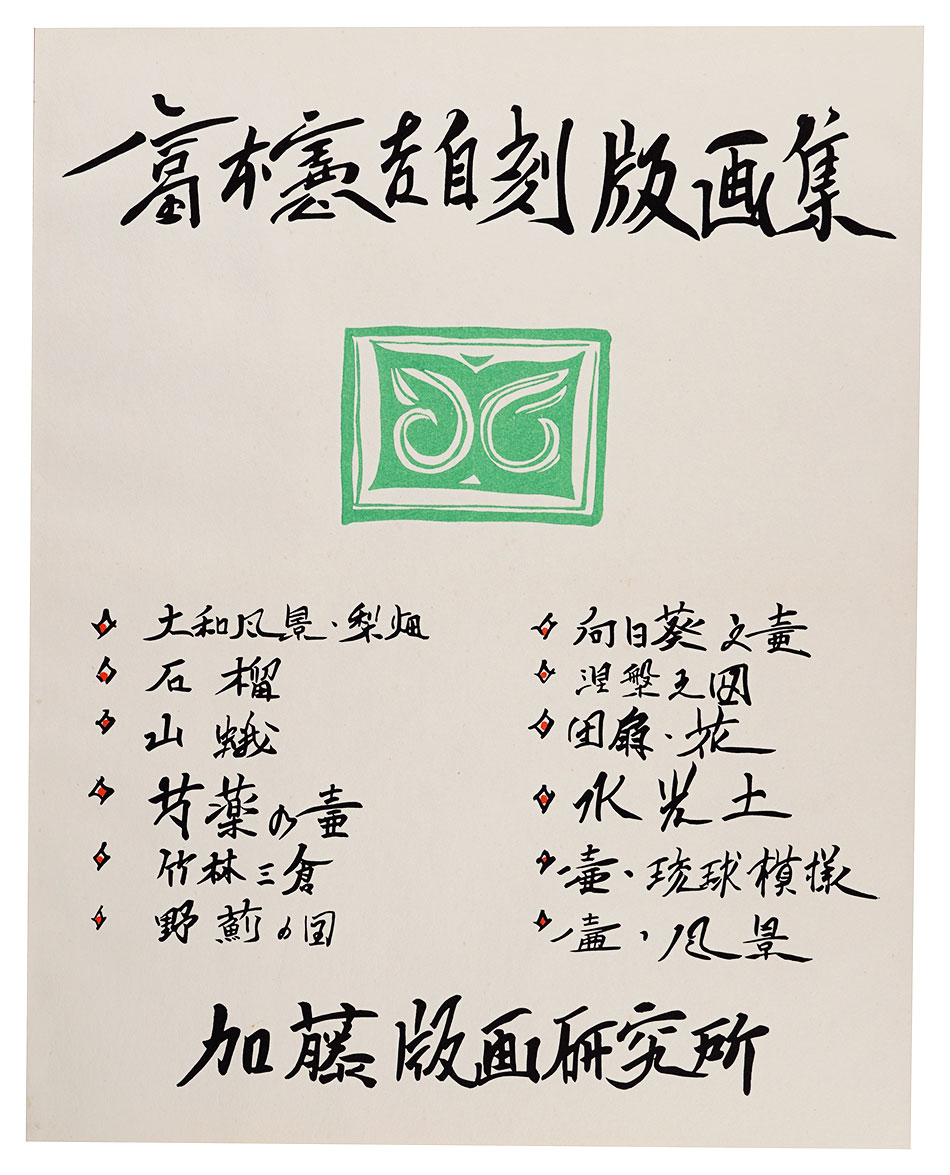 富本憲吉自刻版画集
大和風景・梨畑
石榴
山蛾
芍薬の壷
竹林三倉
野薊の図
向日葵文壷
涅槃之図
団扇・花
水火土
壷・琉球模様
壷・風景
加藤版画研究所